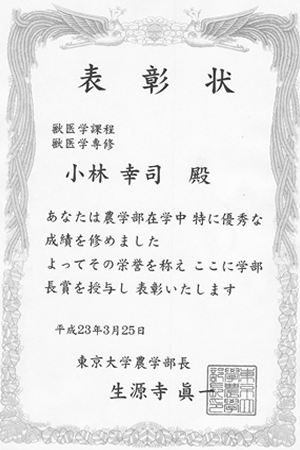 表彰状
獣医学課程
獣医学専修
小林 幸司 殿
あなたは農学部在学中 特に優秀な
成績を修めました
よってその栄誉を称え ここに学部
長賞を授与し 表彰いたします
平成23年3月25日
東京大学農学部長
生源寺 眞一